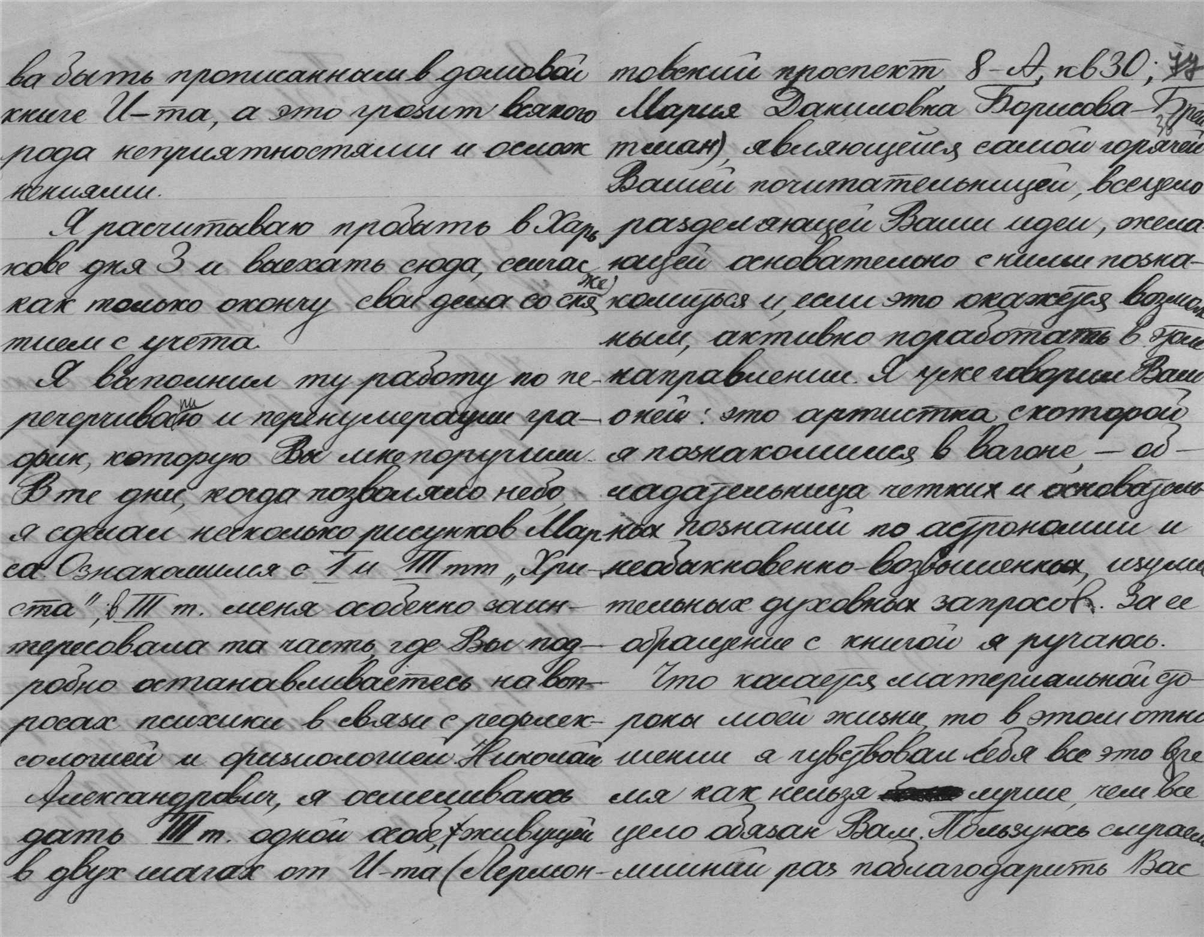 ва быть прописанным в домовой
книге И-та, а это грозит всякого
рода неприятностями и ослож
нениями.
Я расчитываю пробыть в Харь
кове дня 3 и выехать сюда, сейчас же
как только окончу свои дела со сня
тием с учета.
Я выполнил ту работу по пе-
речерчиванию и перенумерации гра-
фик, которую Вы мне поручили.
В те дни, когда позволяло небо
я сделал несколько рисунков Мар
са. Ознакомился с I и III тт „Хри-
ста", в III т. меня особенно заин-
тересовала та часть, где Вы под-
робно останавливаетесь на воп-
росах психики в связи с рефлек-
сологией и физиологией. Николай
Александрович, я осмеливаюсь
дать III т. одной особе, живущей
в двух шагах от И-та (Лермон-
товский проспект 8-А, кв 30;
Мария Даниловна Борисова-Бра
тман), являющейся самой горячей
Вашей почитательницей, всецело
разделяющей Ваши идеи, жела-
ющей основательно с ними позна-
комиться и, если это окажется возмож
ным, активно поработать в этом
направлении. Я уже говорил Вам
о ней: это артистка с которой
я познакомился в вагоне, — об-
ладательница четких и основатель
ных познаний по астрономии и
необыкновенно-возвышенных, изуми
тельных духовных запросов. За ее
обращение с книгой я ручаюсь.
Что касается материальной сто-
роны моей жизни, то в этом отно
шении я чувствовал себя все это вре
мя как нельзя лучше, чем все
цело обязан Вам. Пользуюсь случаем
лишний раз поблагодарить Вас